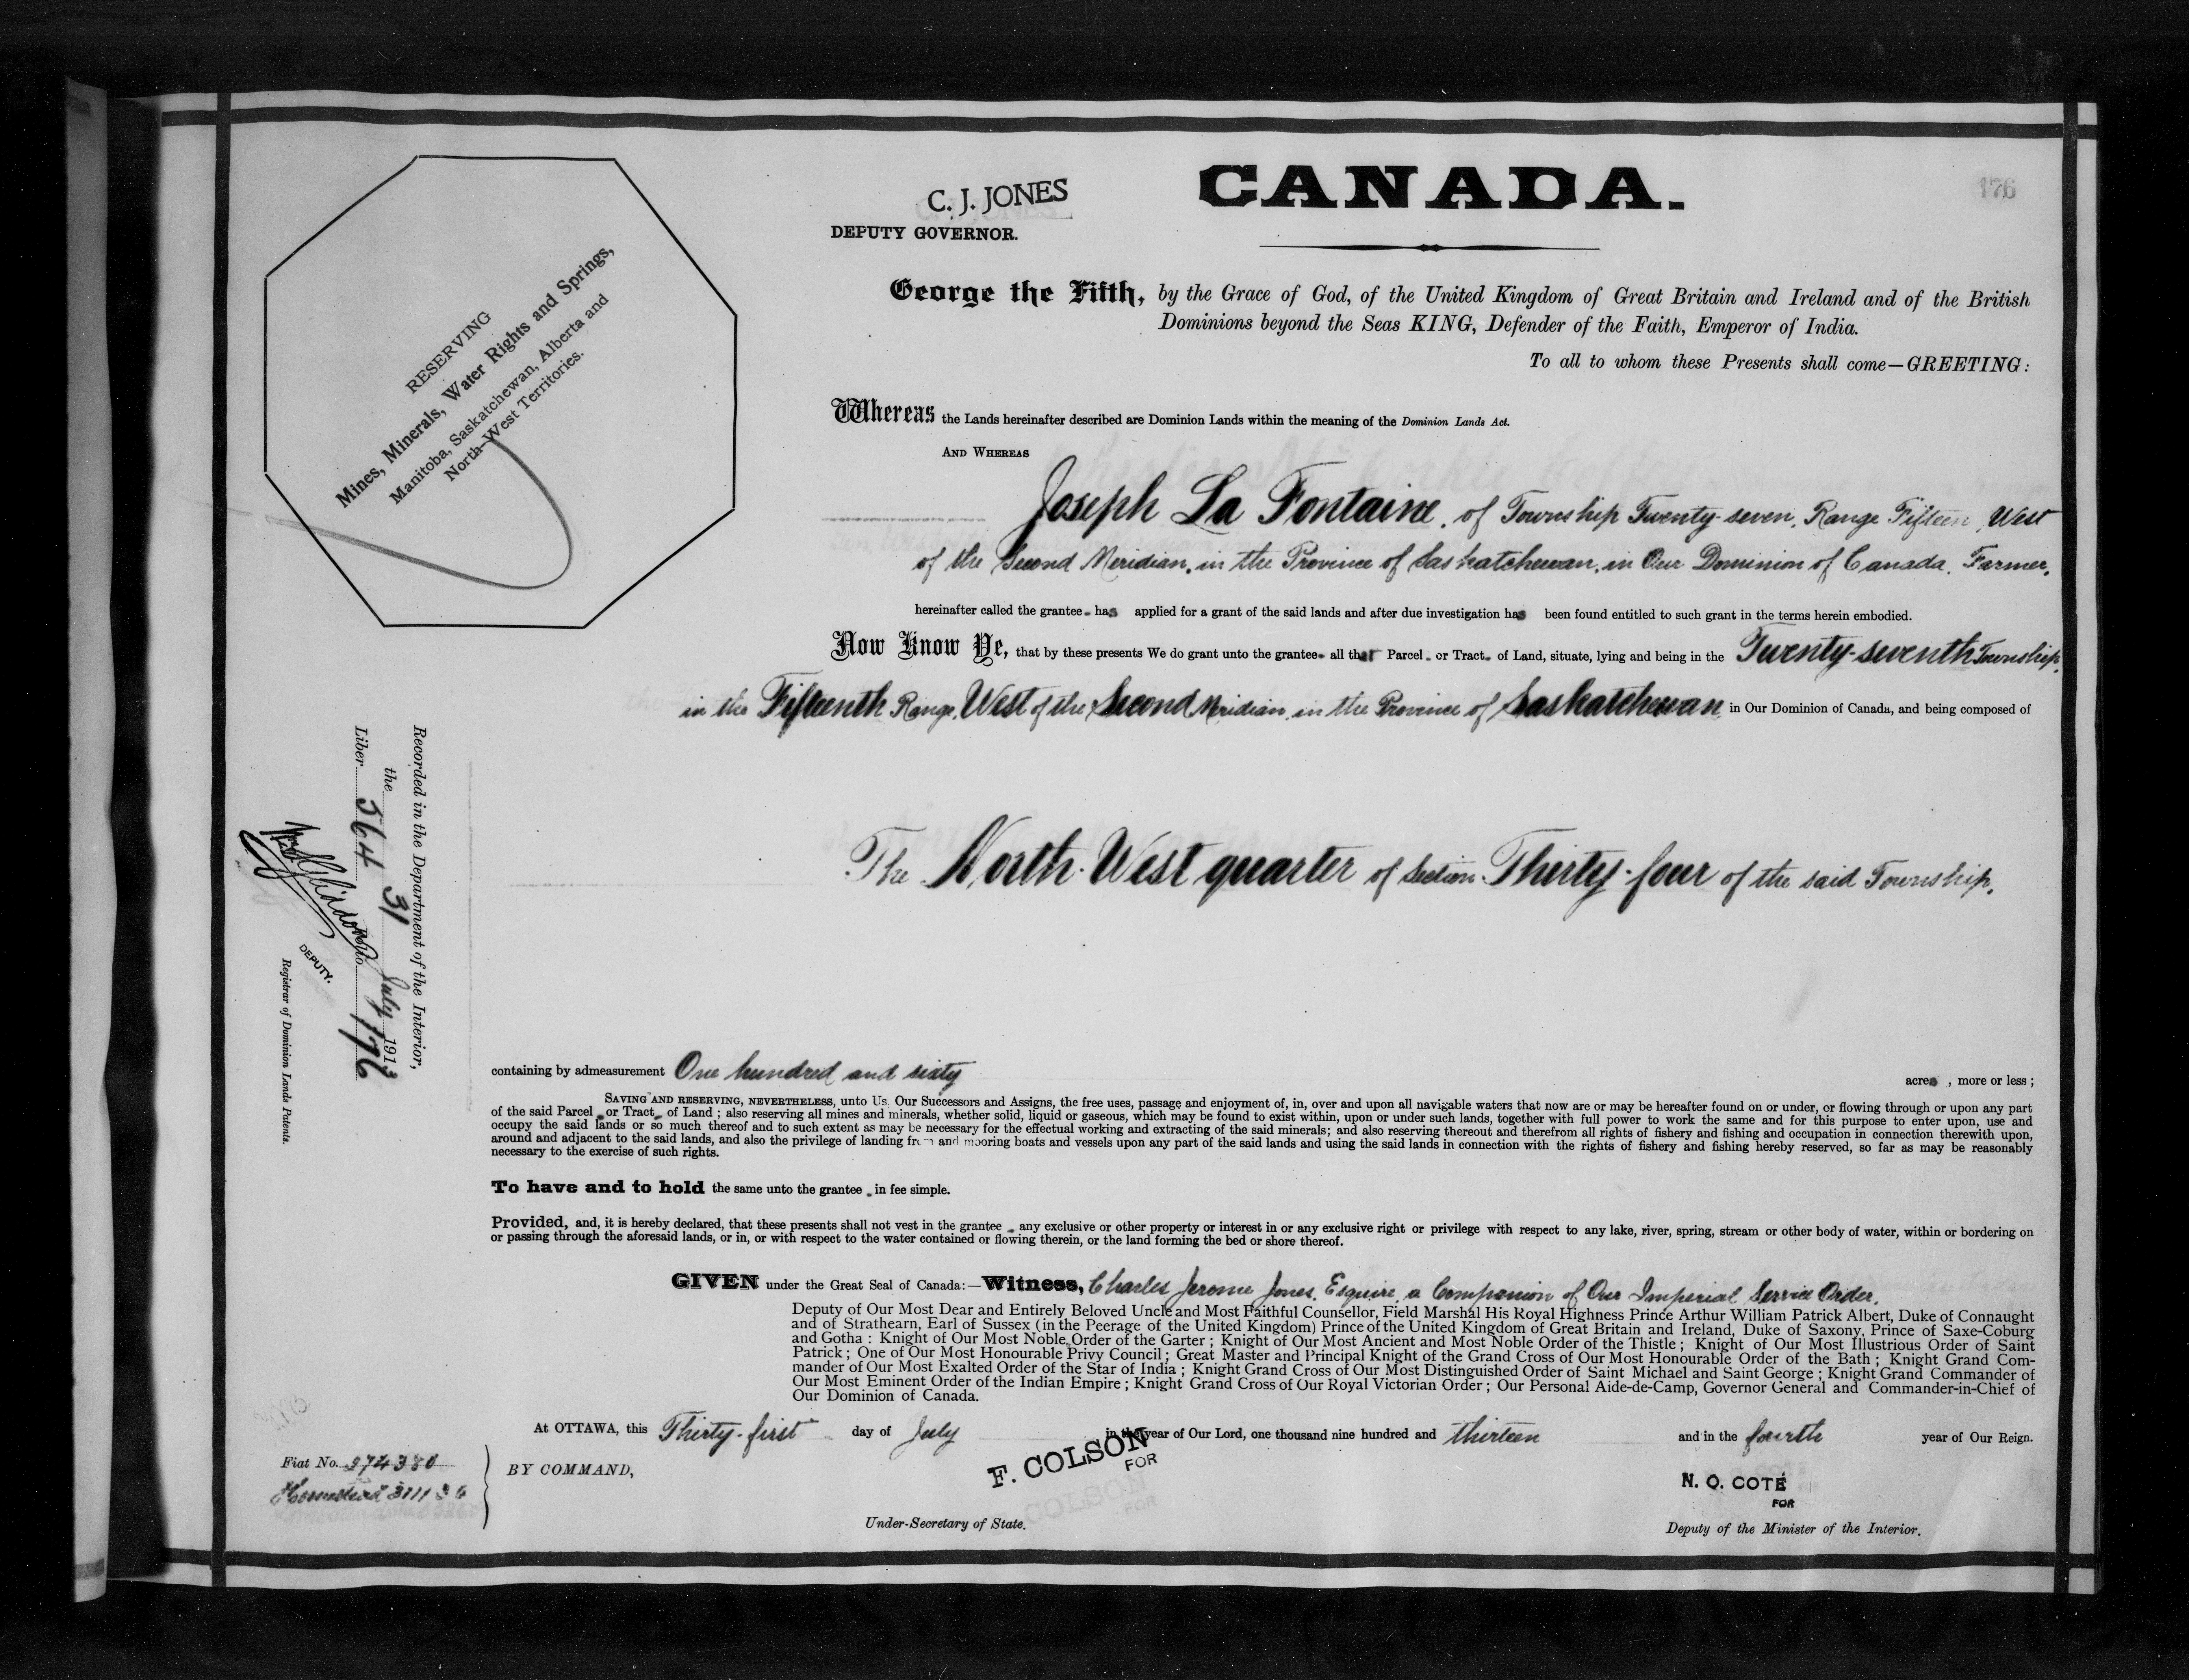 176
CANADA.
C. J. JONES
DEPUTY GOVERNOR.
RESERVING
Mines, Minerals, Water Rights and Springs,
Manitoba, Saskatchewan, Alberta and
North-West Territories.
George the Fifth, by the Grace of God, of the United Kingdom of Great Britain and Ireland and of the British
Dominions beyond the Seas KING, Defender of the Faith, Emperor of India.
To all to whom these Presents shall come—GREETING:
Whereas the Lands hereinafter described are Dominion Lands within the meaning of the Dominion Lands Act.
AND WHEREAS
Joseph La Fontaine, of Township Twenty-seven, Range Fifteen, West
of the Second Meridian, in the Province of Saskatchewan, in Our Dominion of Canada, Farmer,
hereinafter called the grantee has applied for a grant of the said lands and after due investigation has been found entitled to such grant in the terms herein embodied.
Now Know Ye, that by these presents We do grant unto the grantee all that Parcel or Tract of Land, situate, lying and being in the Twenty-seventh Township,
in the Fifteenth Range, West of the Second Meridian, in the Province of Saskatchewan, in Our Dominion of Canada, and being composed of
The North-West quarter of Section Thirty-four of the said Township,
containing by admeasurement One hundred and sixty acres, more or less;
SAVING AND RESERVING, NEVERTHELESS, unto Us, Our Successors and Assigns, the free uses, passage and enjoyment of, in, over and upon all navigable waters that now are or may be hereafter found on or under, or flowing through or upon any part
of the said Parcel or Tract of Land; also reserving all mines and minerals, whether solid, liquid or gaseous, which may be found to exist within, upon or under such lands, together with full power to work the same and for this purpose to enter upon, use and
occupy the said lands or so much thereof and to such extent as may be necessary for the effectual working and extracting of the said minerals; and also reserving thereout and therefrom all rights of fishery and fishing and occupation in connection therewith upon,
around and adjacent to the said lands, and also the privilege of landing from and mooring boats and vessels upon any part of the said lands and using the said lands in connection with the rights of fishery and fishing hereby reserved, so far as may be reasonably
necessary to the exercise of such rights.
To have and to hold the same unto the grantee in fee simple.
Provided, and, it is hereby declared, that these presents shall not vest in the grantee any exclusive or other property or interest in or any exclusive right or privilege with respect to any lake, river, spring, stream or other body of water, within or bordering on
or passing through the aforesaid lands, or in, or with respect to the water contained or flowing therein, or the land forming the bed or shore thereof.
GIVEN under the Great Seal of Canada:—Witness, Charles Jerome Jones, Esquire, a Companion of Our Imperial Service Order,
Deputy of Our Most Dear and Entirely Beloved Uncle and Most Faithful Counsellor, Field Marshal His Royal Highness Prince Arthur William Patrick Albert, Duke of Connaught
and of Strathearn, Earl of Sussex (in the Peerage of the United Kingdom) Prince of the United Kingdom of Great Britain and Ireland, Duke of Saxony, Prince of Saxe-Coburg
and Gotha: Knight of Our Most Noble Order of the Garter; Knight of Our Most Ancient and Most Noble Order of the Thistle; Knight of Our Most Illustrious Order of Saint
Patrick; One of Our Most Honourable Privy Council; Great Master and Principal Knight of the Grand Cross of Our Most Honourable Order of the Bath; Knight Grand Com-
mander of Our Most Exalted Order of the Star of India; Knight Grand Cross of Our Most Distinguished Order of Saint Michael and Saint George; Knight Grand Commander of
Our Most Eminent Order of the Indian Empire; Knight Grand Cross of Our Royal Victorian Order; Our Personal Aide-de-Camp, Governor General and Commander-in-Chief of
Our Dominion of Canada.
At OTTAWA, this Thirty-first day of July in the year of Our Lord, one thousand nine hundred and thirteen and in the fourth year of Our Reign.
BY COMMAND,
F. COLSON
FOR
Under-Secretary of State.
N. O. COTÉ
FOR
Deputy of the Minister of the Interior.
Fiat No. 274380
Homestead
Recorded in the Department of the Interior,
the 31 July 1913
Liber 364 Folio 176
DEPUTY.
Registrar of Dominion Lands Patents.